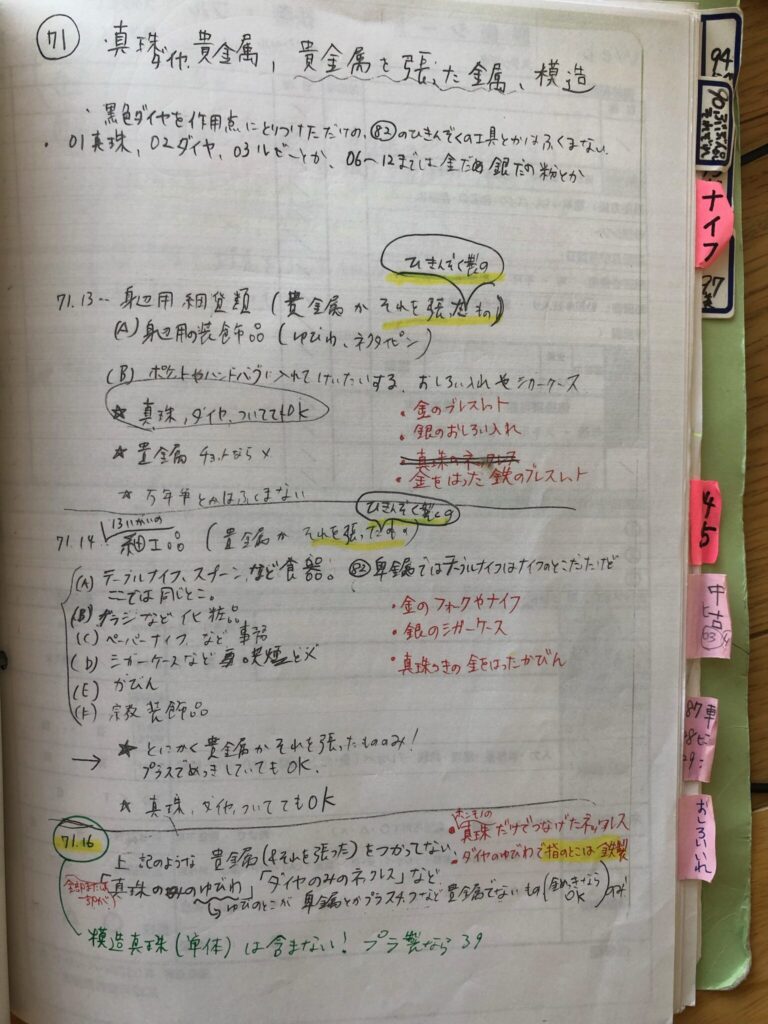 71 真珠ダイヤ、貴金属、貴金属を張った金属、模造
・黒色ダイヤを作用点にとりつけただけの、82のひきんぞくの工具とかはふくまない。
・01真珠、02ダイヤ、03ルビーとか、06〜12までは金だの銀だの粉とか
ひきんぞく製の
71.13… 身辺用細貨類(貴金属かそれを張ったもの)
(A) 身辺用の装飾品(ゆびわ、ネクタイピン)
(B) ポケットやハンドバッグに入れてけいたいする、おしろい入れやシガーケース
★ 真珠、ダイヤ、ついててもOK
★ 貴金属 チョットなら×
★ 万年筆とかはふくまない
・金のブレスレット
・銀のおしろい入れ
・真珠のネックレス
・金をはった鉄のブレスレット
13いがいの
ひきんぞく製の
71.14… 細工品(貴金属かそれを張ったもの)
(A) テーブルナイフ、スプーン、など食器。82卑金属ではテーブルナイフはナイフのとこだったけど
ここでは同じとこ。
(B) ブラシなど化粧品
(C) ペーパーナイフなど事務
(D) シガーケースなど 喫煙
(E) かびん
(F) 宗教装飾品
・金のフォークやナイフ
・銀のシガーケース
・真珠つきの金をはったかびん
→ ★ とにかく貴金属かそれを張ったもののみ!
プラスでめっきしていてもOK.
★ 真珠、ダイヤ、ついててもOK
71.16
上記のような貴金属(&それを張った)をつかってない、
「真珠のみのゆびわ」「ダイヤのみのネックレス」など
ゆびのとこが卑金属とかプラスチックなど貴金属でないもの(金めっきならOK)
ホンモノの
・真珠だけでつなげたネックレス
・ダイヤのゆびわで指のとこは鉄製
全部または一部が!
模造真珠(単体)は含まない! プラ製なら39
94
ナイフ
45
中古
63
87車
おしろいいれ